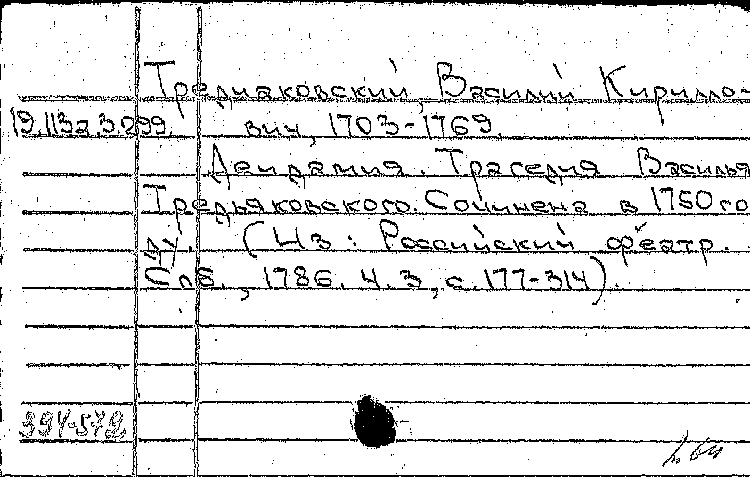 Тредиаковский, Василий Кирилло-
19.113а.3.299. вич, 1703-1769.
Деидамия. Трагедия Василья
Тредьяковского. Сочинена в 1750 го
ду. (Из: Российский феатр.
Спб., 1786. Ч. 3, с. 177-314).
394-572